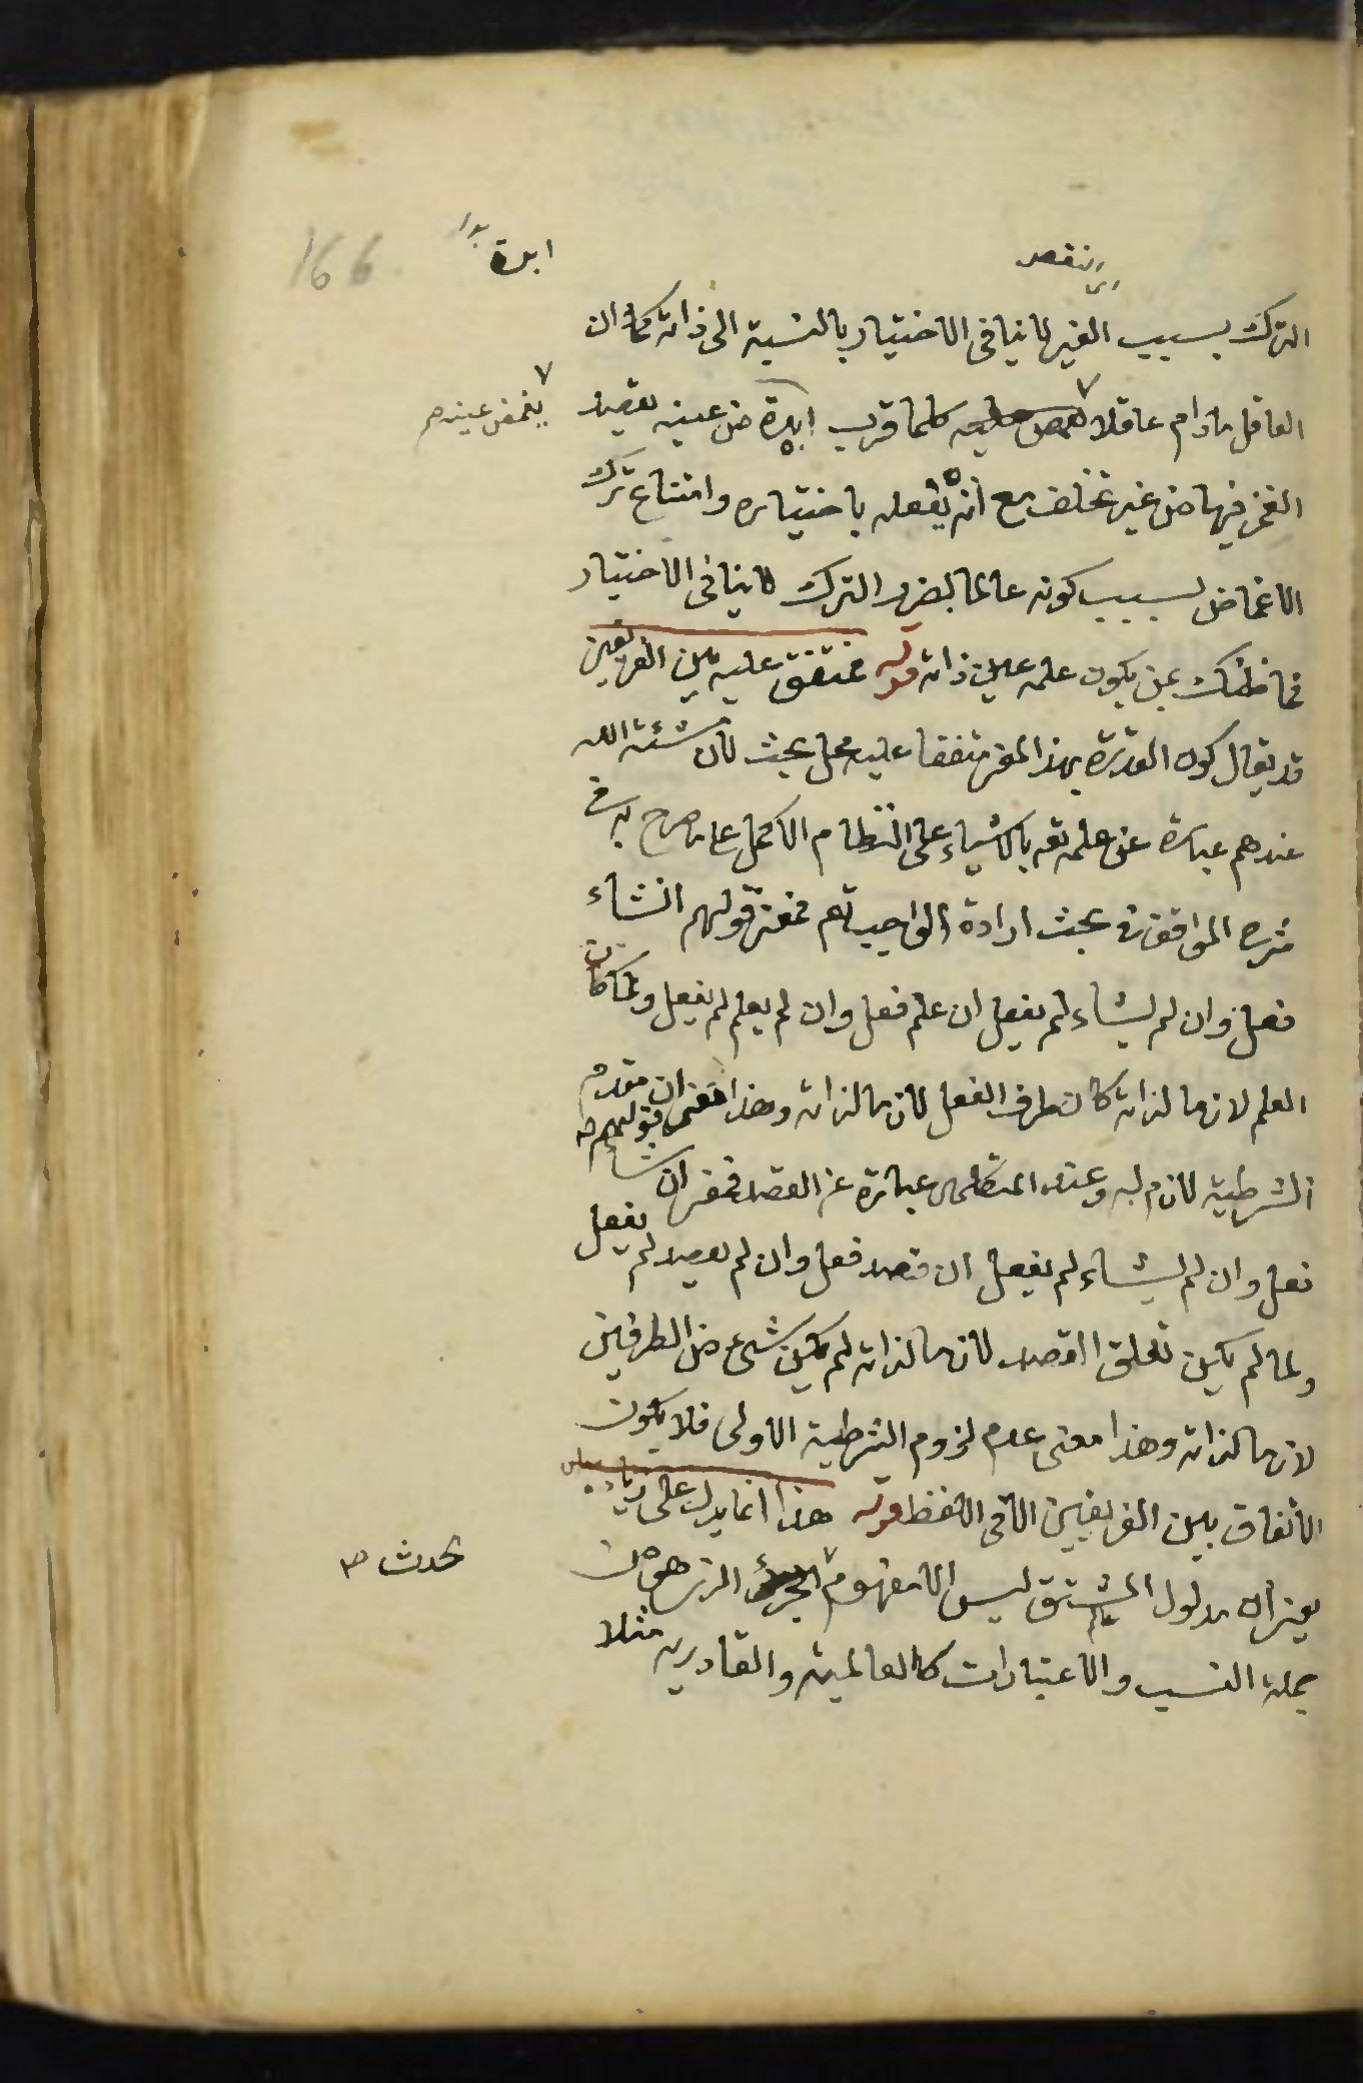 166
ابرة
الترك بسبب الغير لا ينافى الاختيار بالنسبة الى ذاته كما ان
العاقل مادام عاقلا كلما قرب ابرة من عينه بقصد
يغمض عينه صح
الغمز فيها من غير تخلف مع انه يفعله باختياره وامتناع ترك
الاغماض بسبب كونه عالما بضرر الترك لا ينافى الاختيار
فما ظنك بمن يكون علمه عين ذاته قوله متفق عليه بين الفريقين
قد يقال كون القدرة بهذا المعنى متفقا عليه محل بحث لان مشئة الله
عندهم عبارة عن علمه تعه بالاشياء على النظام الاكمل على ما صرح به فى
شرح المواقف فى بحث ارادة الواجب تعم فمعنى قولهم ان شاء
فعل وان لم يشاء لم يفعل ان علم فعل وان لم يعلم لم يفعل ولما كان
العلم لازما لذاته كان طرف الفعل لازما لذاته وهذا معنى قولهم ان مقدم
الشرطية لازم له وعند المتكلمين عبارة عن القصد فمعنى ان شاء
فعل وان لم يشاء لم يفعل ان قصد فعل وان لم يقصد لم يفعل
ولما لم يكن تعلق القصد لازما لذاته لم يكن شىء من الطرفين
لازما لذاته وهذا معنى عدم لزوم الشرطية الاولى فلا يكون
الاتفاق بين الفريقين الا فى اللفظ قوله هذا انما يدل على
يعنى ان مدلول المشتق ليس الا مفهوم الذى هو من
تحدث صح
جملة النسب والاعتبارات كالعالمية والقادرية مثلا